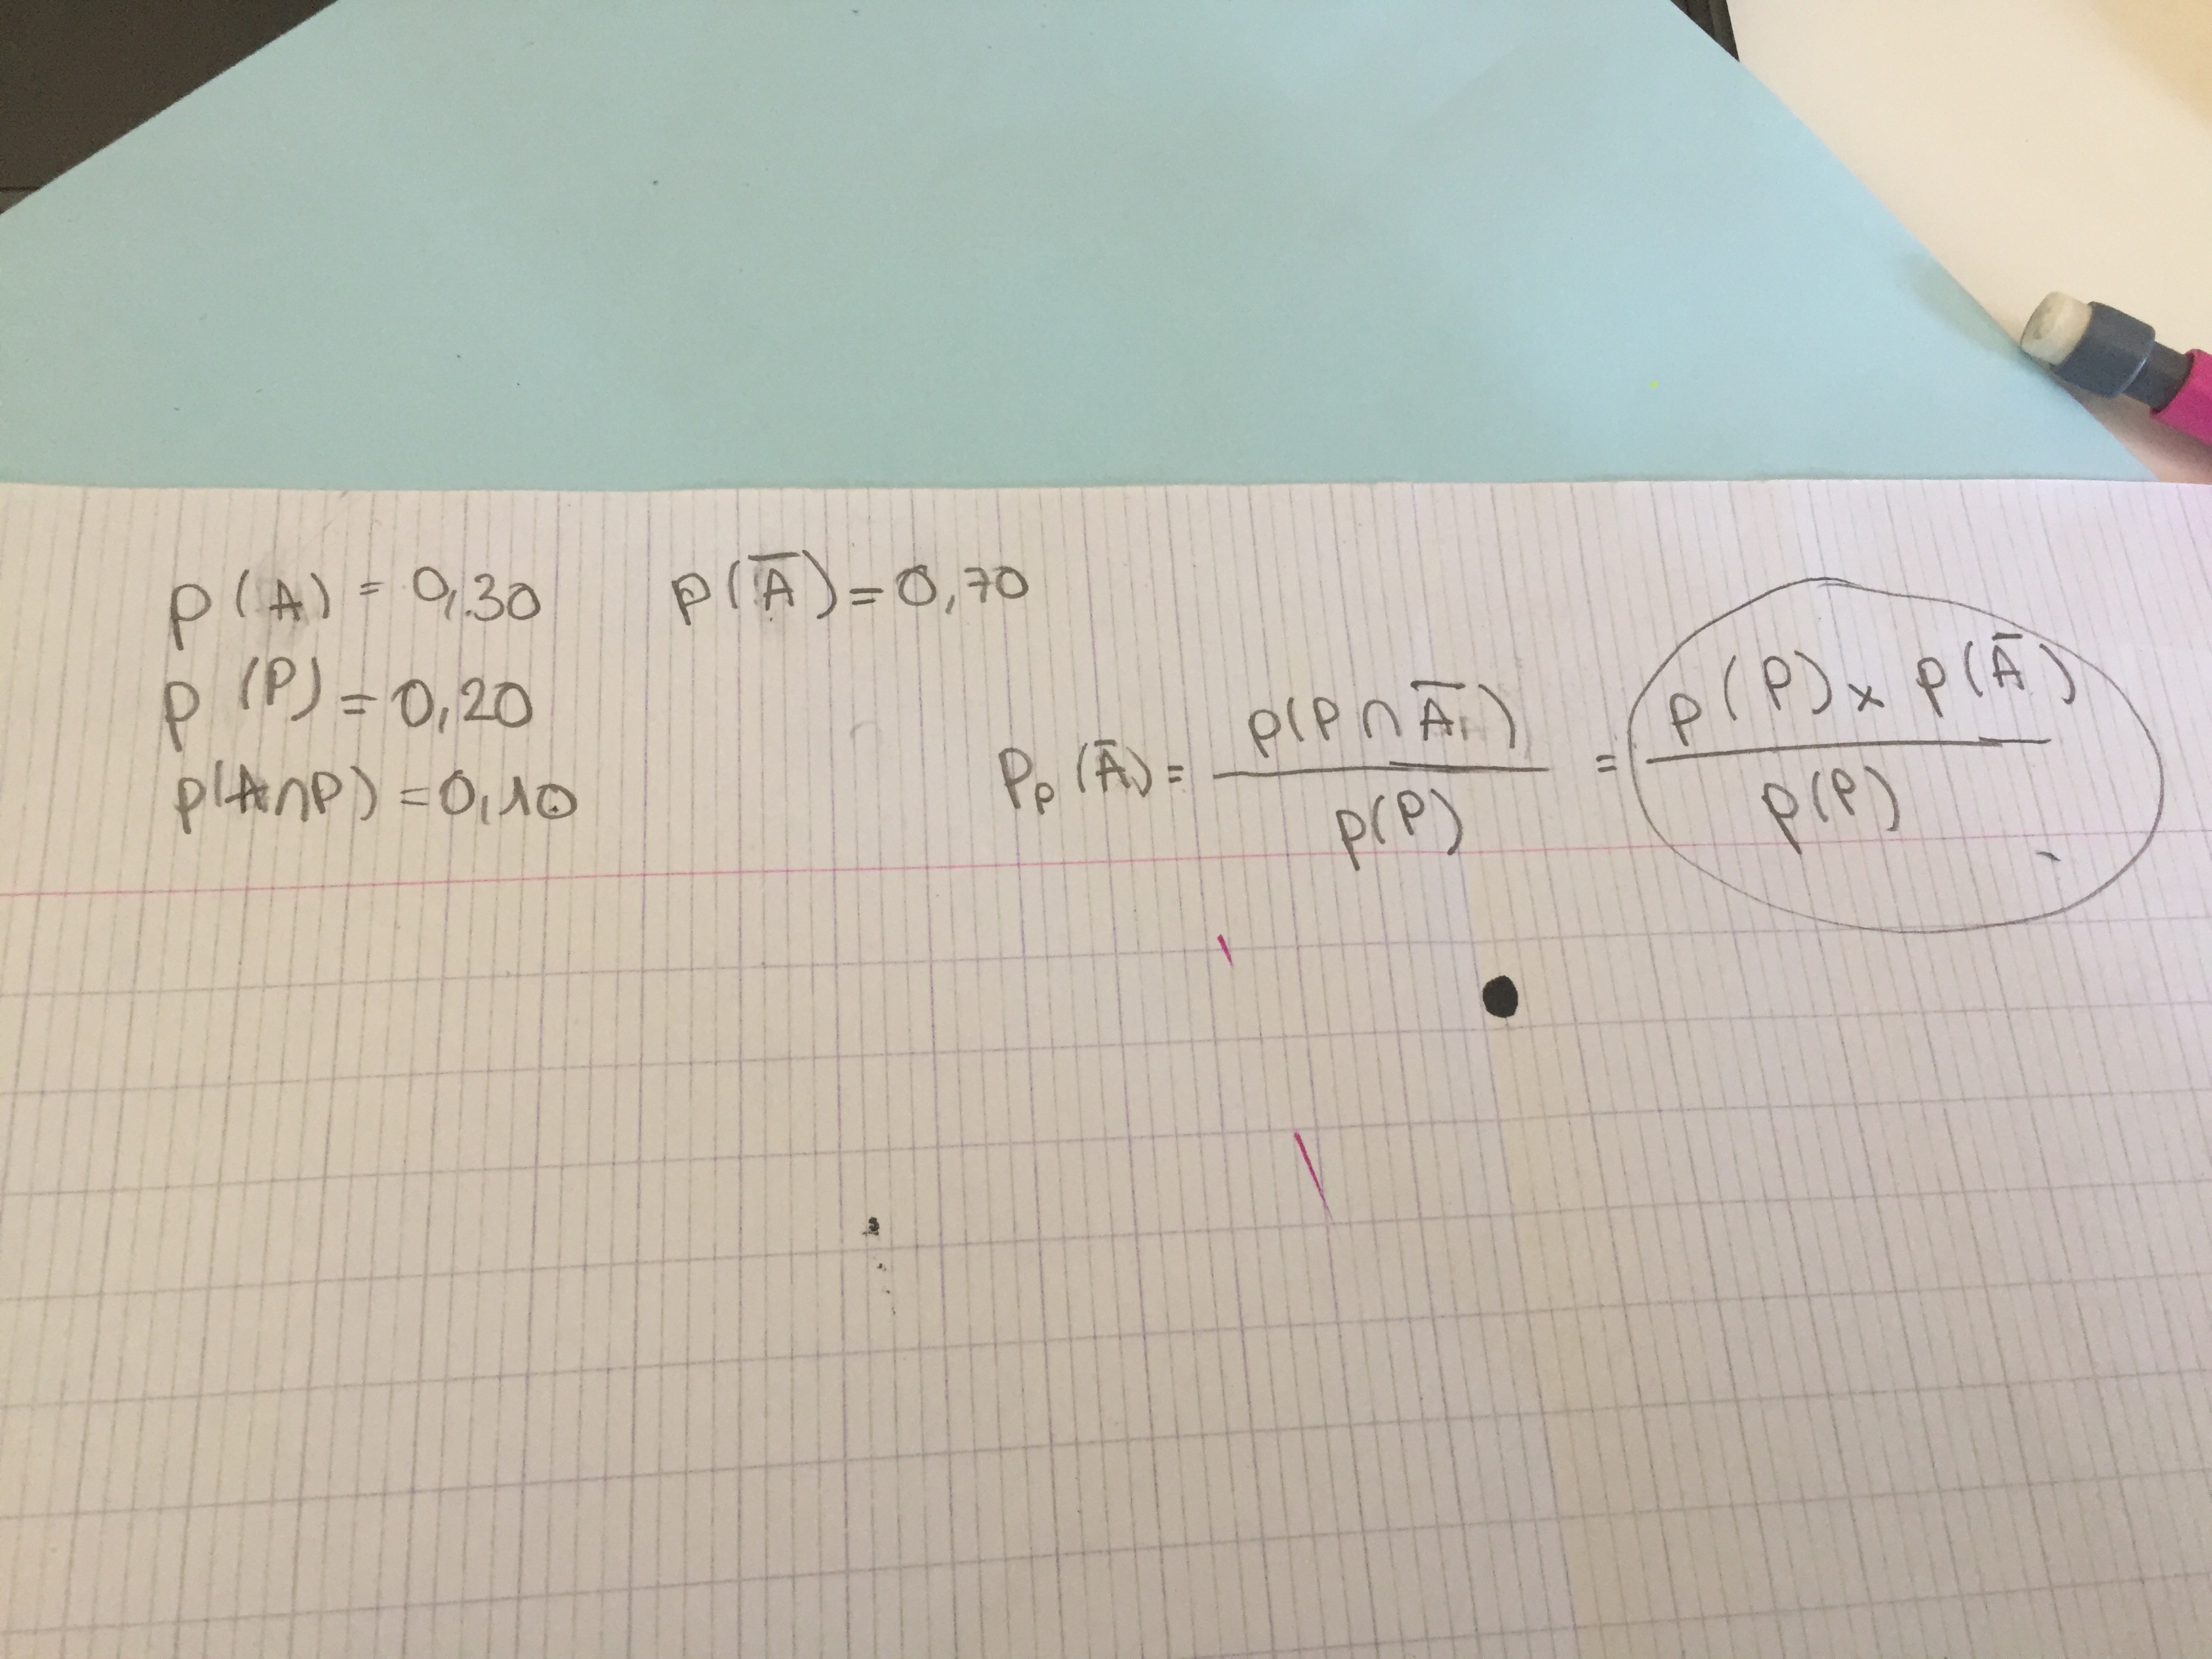 p(A) = 0,30    p(A̅) = 0,70
p(P) = 0,20
p(A∩P) = 0,10
P_P(A̅) = p(P∩A̅) / p(P) = p(P) × p(A̅) / p(P)